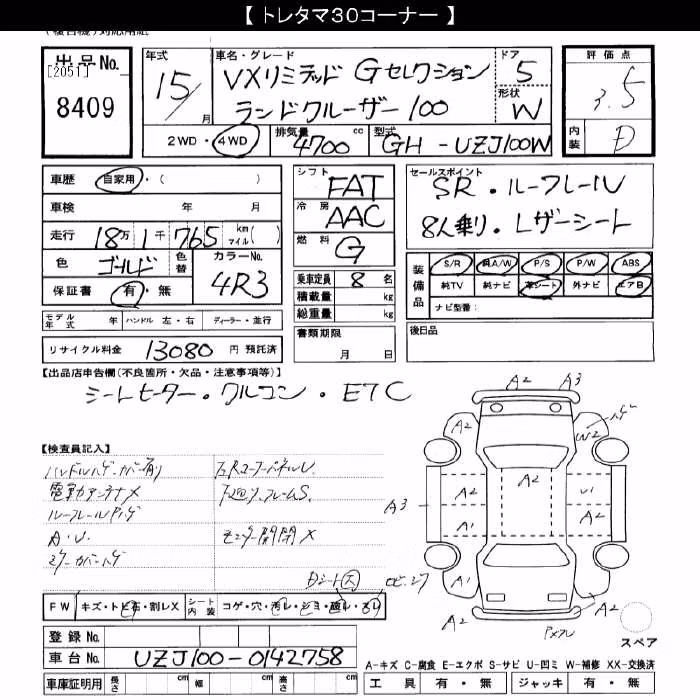 【 トレタマ30コーナー 】
出品No.
[2051]
8409
年式
15/
月
車名・グレード
VXリミテッド Gセレクション
ランドクルーザー100
ドア
5
形状
W
2WD・4WD
排気量
4700 cc
型式
GH-UZJ100W
評価点
3.5
内装
D
車歴 自家用・( )
車検 年 月
走行 18万1千765 km マイル( )
色 ゴールド 色替
カラーNo.
4R3
保証書 有・無
シフト FAT
冷房 AAC
燃料 G
乗車定員 8 名
積載量 kg
総重量 kg
セールスポイント
SR・ルーフレール
8人乗り・レザーシート
装備品
S/R 純A/W P/S P/W ABS
純TV 純ナビ 革シート 外ナビ エアB
ナビ型番:
モデル年式 年 ハンドル 左・右 ディーラー・並行
リサイクル料金 13080 円 預託済
書類期限
月 日
後日品
【出品店申告欄(不良箇所・欠品・注意事項等)】
シートヒーター・クルコン・ETC
【検査員記入】
電動アンテナX
A・U
ミラーカバーハゲ
下廻り、フレームS
モニター開閉X
Dシート
A2 A3
A2 W2
A2
A3 A2 U1
A1
A1 A2
A2
FW キズ・トビ石・割レX
シート内装 コゲ・穴・汚レ・シミ・破レ・スレ
登録No.
車台No. UZJ100-0142758
スペア
A-キズ C-腐食 E-エクボ S-サビ U-凹ミ W-補修 XX-交換済
車庫証明用 長さ cm 幅 cm 高さ cm
工具 有・無 ジャッキ 有・無